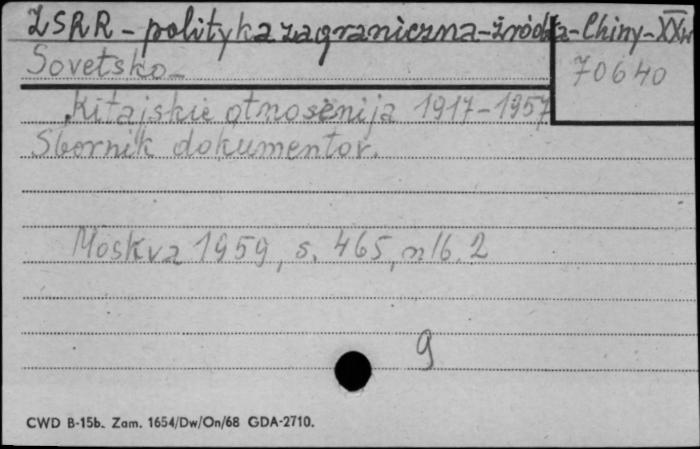 ZSRR - polityka zagraniczna - źródła - Chiny - XXw
Sovetsko-
70640
Kitajskie otnosenija 1917-1957
Sbornik dokumentov.
Moskva 1959, s. 465, nlb. 2
9
CWD B-15b. Zam. 1654/Dw/On/68 GDA-2710.